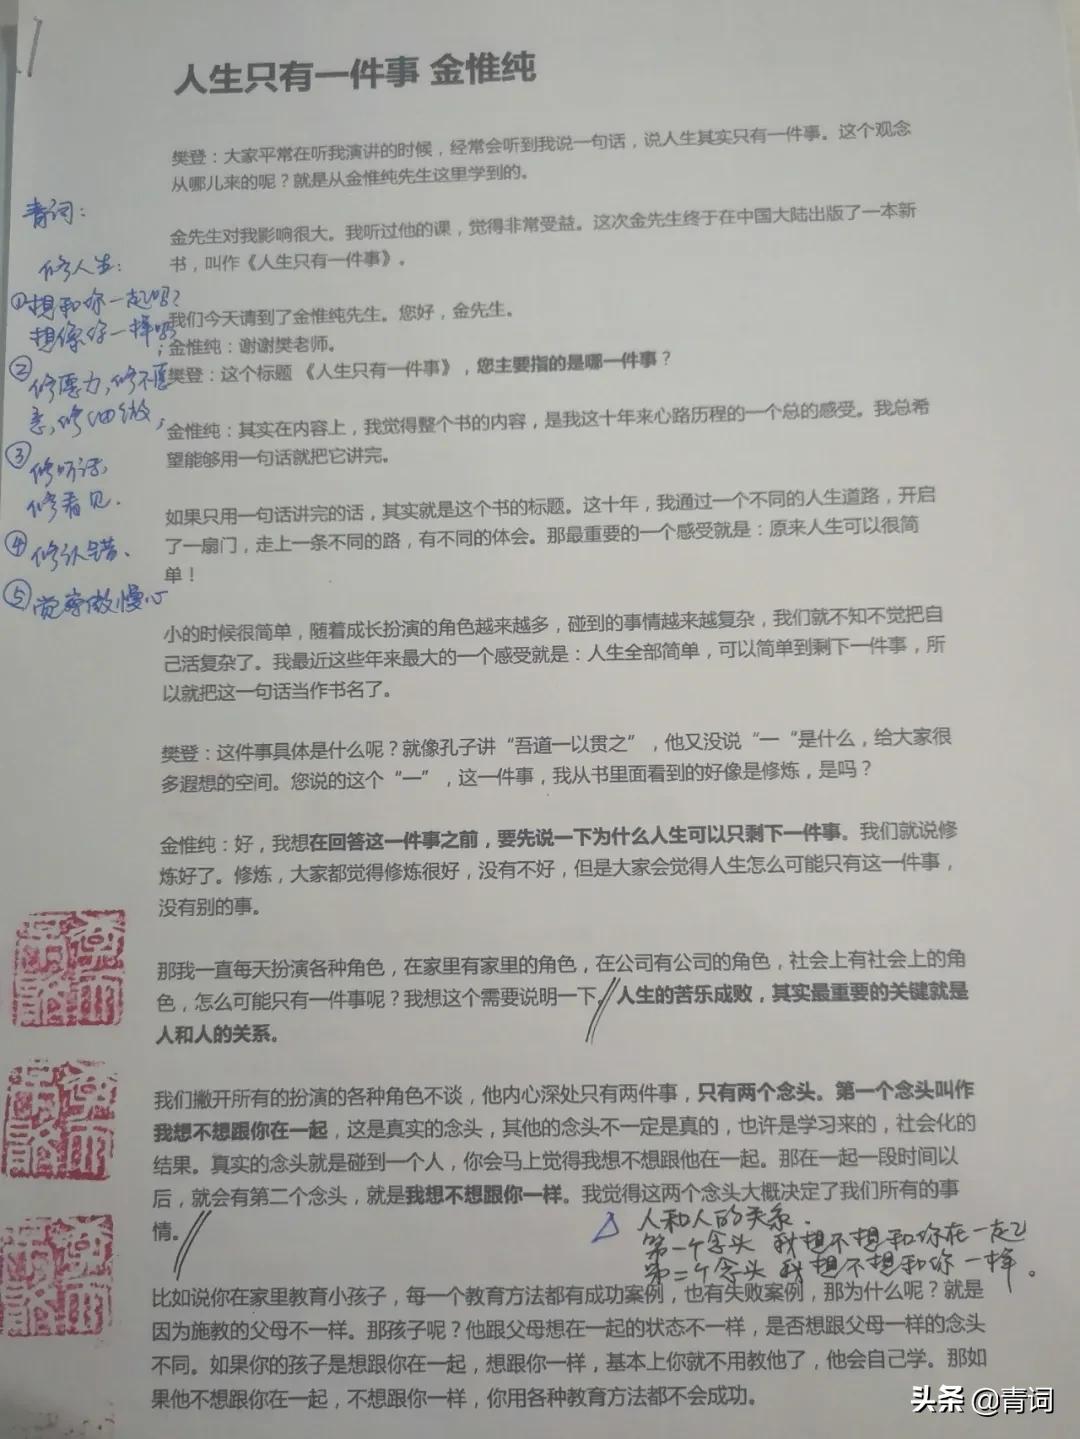 人生只有一件事 金惟纯
樊登：大家平常在听我演讲的时候，经常会听到我说一句话，说人生其实只有一件事。这个观念
从哪儿来的呢？就是从金惟纯先生这里学到的。
金先生对我影响很大。我听过他的课，觉得非常受益。这次金先生终于在中国大陆出版了一本新
书，叫作《人生只有一件事》。
我们今天请到了金惟纯先生。您好，金先生。
金惟纯：谢谢樊老师。
樊登：这个标题 《人生只有一件事》，您主要指的是哪一件事？
金惟纯：其实在内容上，我觉得整个书的内容，是我这十年来心路历程的一个总的感受。我总希
望能够用一句话就把它讲完。
如果只用一句话讲完的话，其实就是这个书的标题。这十年，我通过一个不同的人生道路，开启
了一扇门，走上一条不同的路，有不同的体会。那最重要的一个感受就是：原来人生可以很简
单！
小的时候很简单，随着成长扮演的角色越来越多，碰到的事情越来越复杂，我们就不知不觉把自
己活复杂了。我最近这些年来最大的一个感受就是：人生全部简单，可以简单到剩下一件事，所
以就把这一句话当作书名了。
樊登：这件事具体是什么呢？就像孔子讲“吾道一以贯之”，他又没说“一“是什么，给大家很
多遐想的空间。您说的这个“一”，这一件事，我从书里面看到的好像是修炼，是吗？
金惟纯：好，我想在回答这一件事之前，要先说一下为什么人生可以只剩下一件事。我们就说修
炼好了。修炼，大家都觉得修炼很好，没有不好，但是大家会觉得人生怎么可能只有这一件事，
没有别的事。
那我一直每天扮演各种角色，在家里有家里的角色，在公司有公司的角色，社会上有社会上的角
色，怎么可能只有一件事呢？我想这个需要说明一下，人生的苦乐成败，其实最重要的关键就是
人和人的关系。
我们撇开所有的扮演的各种角色不谈，他内心深处只有两件事，只有两个念头。第一个念头叫作
我想不想跟你在一起，这是真实的念头，其他的念头不一定是真的，也许是学习来的，社会化的
结果。真实的念头就是碰到一个人，你会马上觉得我想不想跟他在一起。那在一起一段时间以
后，就会有第二个念头，就是我想不想跟你一样。我觉得这两个念头大概决定了我们所有的事
情。
人和人的关系.
第一个念头 我想不想和你在一起
第二个念头 我想不想和你一样。
比如说你在家里教育小孩子，每一个教育方法都有成功案例，也有失败案例，那为什么呢？就是
因为施教的父母不一样。那孩子呢？他跟父母想在一起的状态不一样，是否想跟父母一样的念头
不同。如果你的孩子是想跟你在一起，想跟你一样，基本上你就不用教他了，他会自己学。那如
果他不想跟你在一起，不想跟你一样，你用各种教育方法都不会成功。
青词：
修人生：
①想和你一起吗？
想像你一样吗；
②修愿力，修不愿
意，修细微；
③修听话，
修看见.
④修认错、
⑤觉察傲慢心
头条 @青词